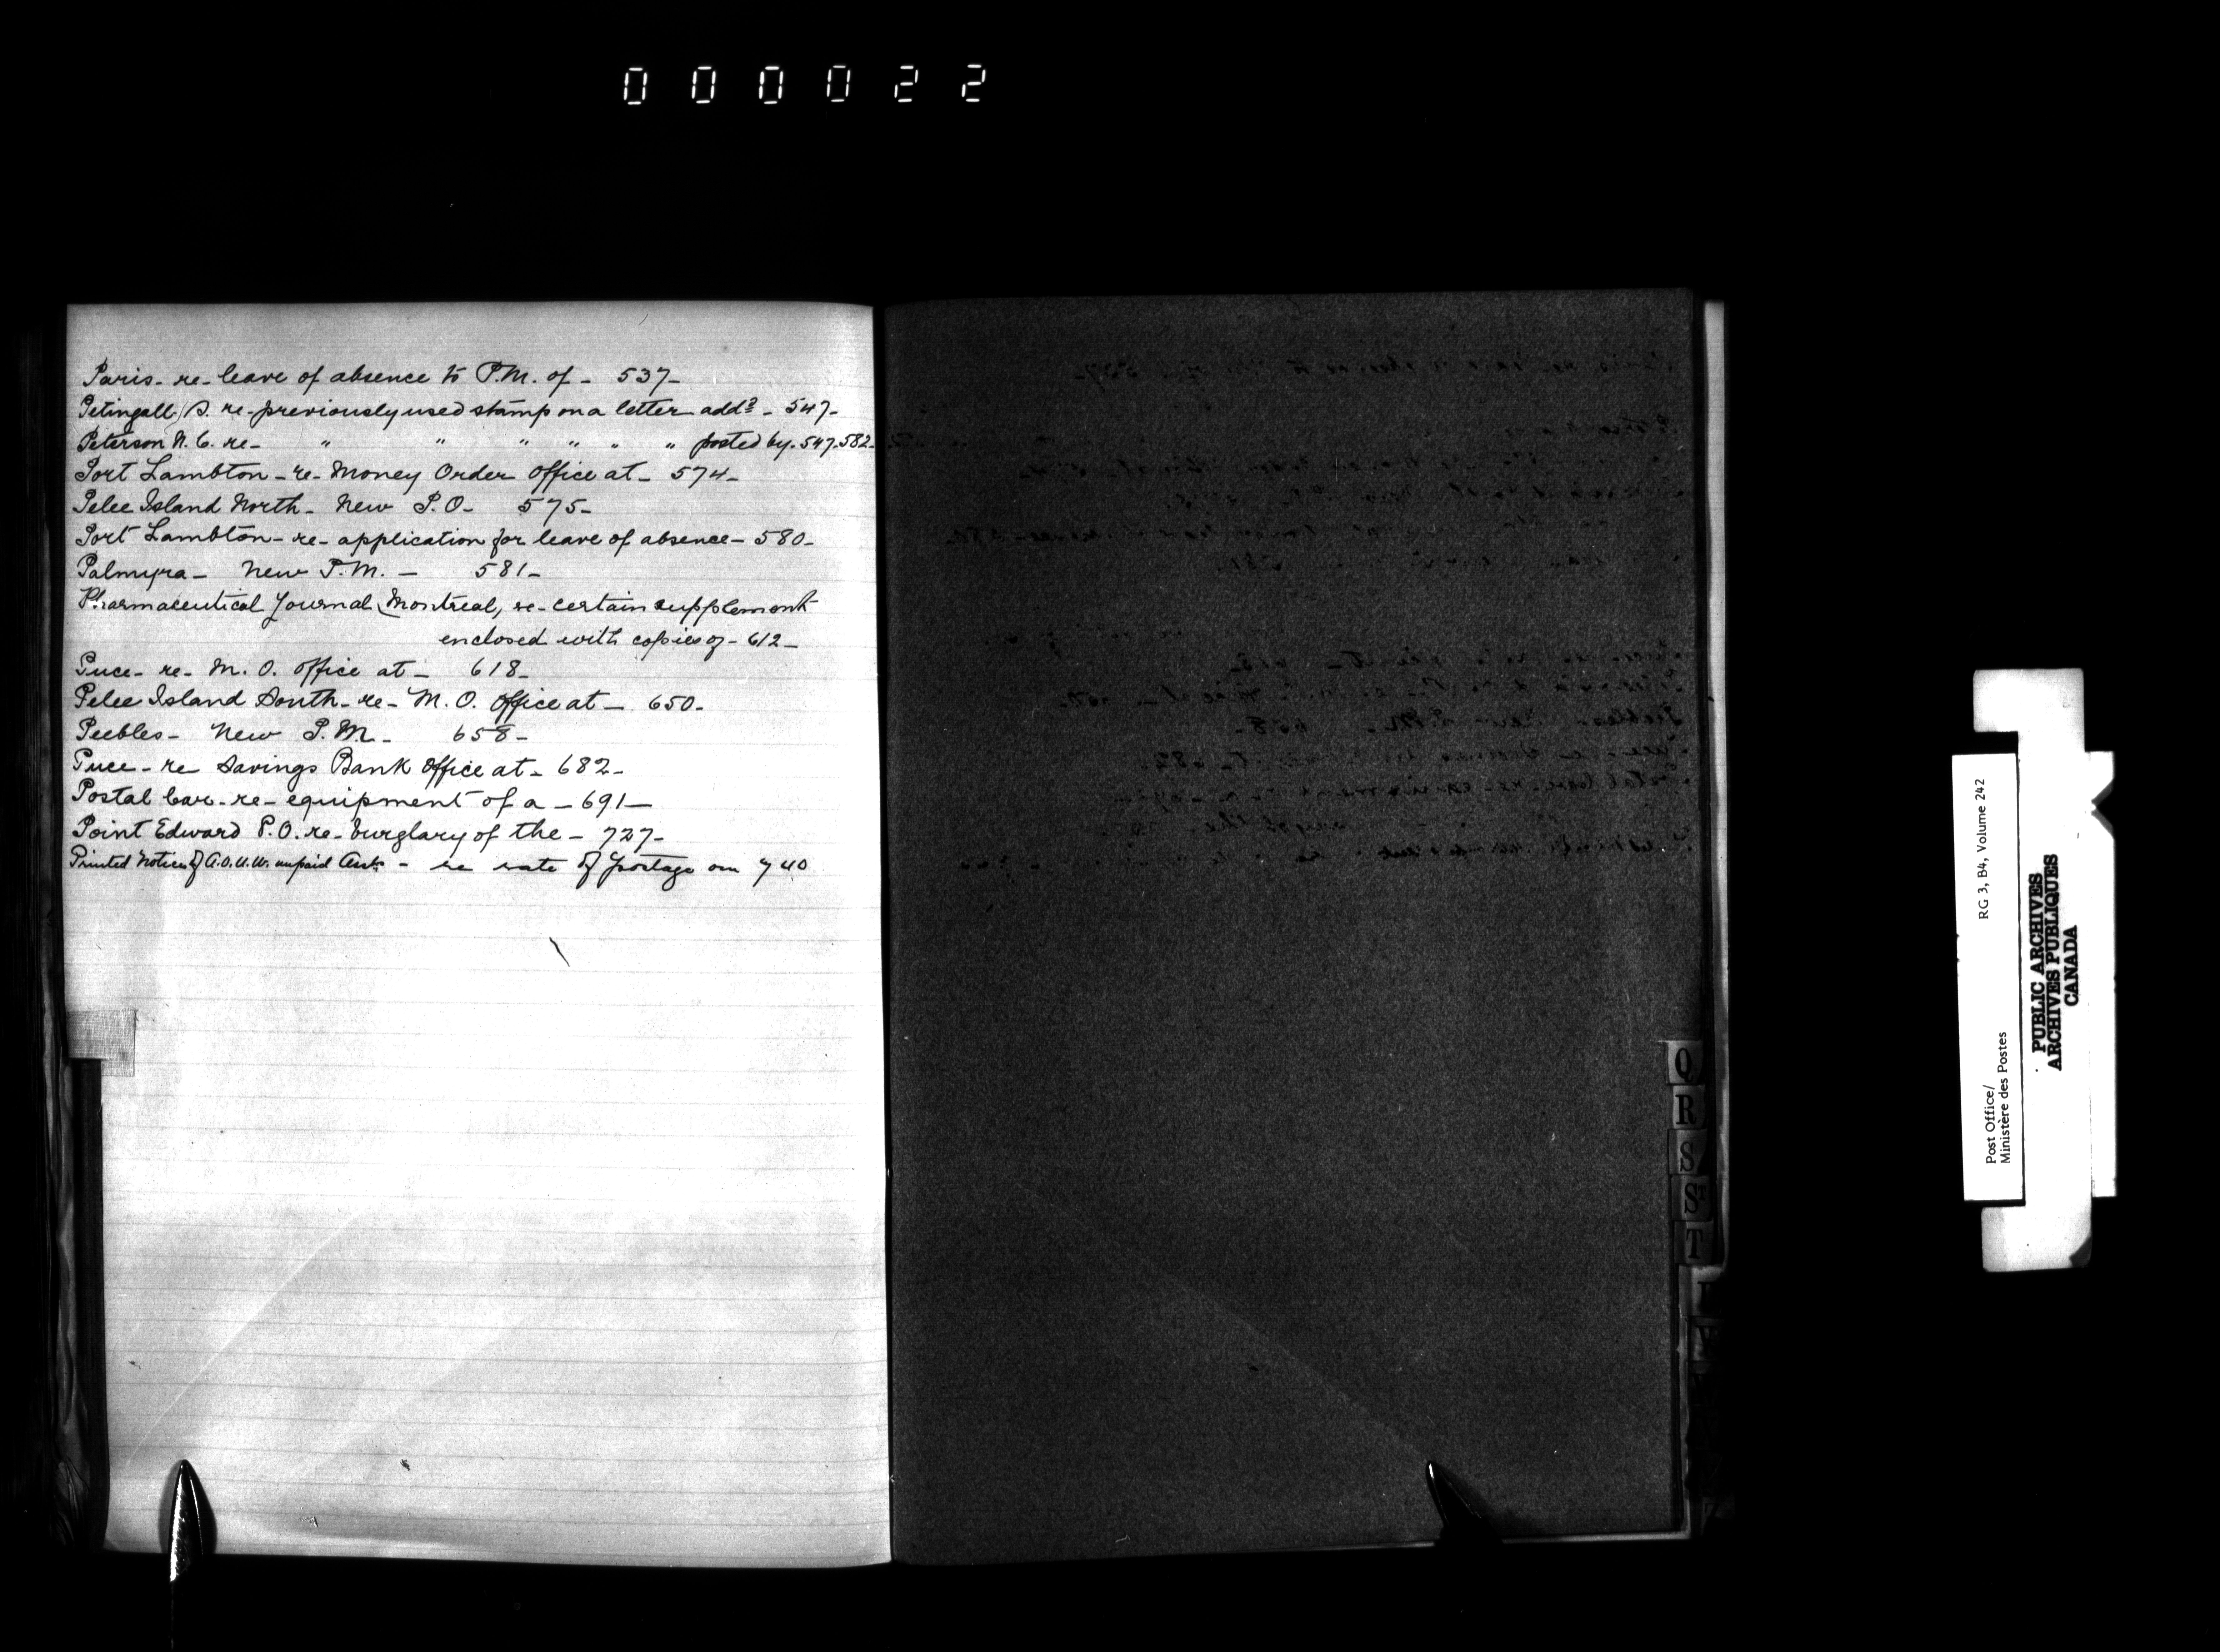 000022
Paris - re - leave of absence to P.M. of - 537 -
Petingall, S. re - previously used stamp on a letter addd - 547 -
Peterson N. C. re - " " " " " " posted by. 547. 582 -
Port Lambton - re - Money Order Office at - 574 -
Pelee Island North - New P.O - 575 -
Port Lambton - re - application for leave of absence - 580 -
Palmyra - New P.M. - 581 -
Pharmaceutical Journal, Montreal, re - certain supplement
enclosed with copies of - 612 -
Puce - re - M. O. Office at - 618 -
Pelee Island South - re - M. O. Office at - 650 -
Peebles - New P.M. - 658 -
Puce - re Savings Bank Office at - 682 -
Postal Car - re - equipment of a - 691 -
Point Edward P.O. re - burglary of the - 727 -
Printed Notices of A.O.U.W. unpaid - re rate of postage on 740
Q
R
S
ST
T
Post Office/ RG 3, B4, Volume 242
Ministère des Postes
PUBLIC ARCHIVES
ARCHIVES PUBLIQUES
CANADA